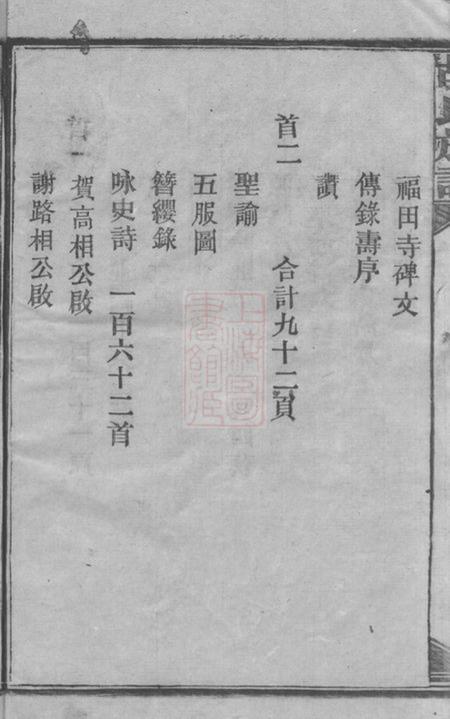 福田寺碑文
傳錄壽序
讚
首二　合計九十二頁
聖諭
五服圖
簪纓錄
咏史詩　一百六十二首
賀高相公啟
謝路相公啟
上海圖書館藏